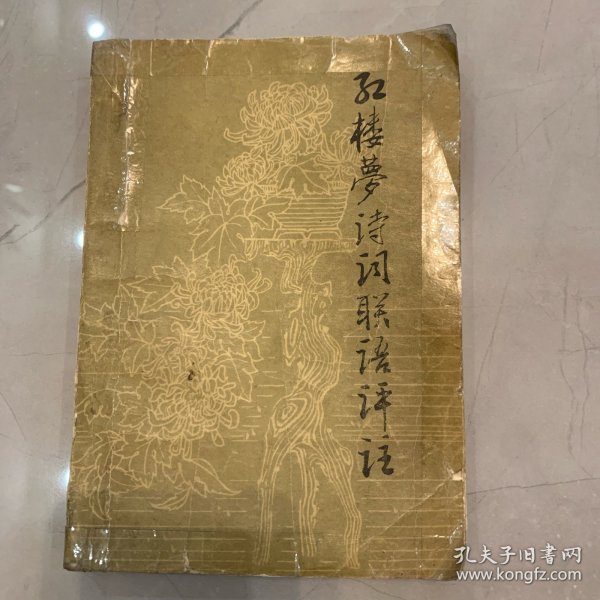 红楼夢诗词联语评註
孔夫子旧书网
www.kongfz.com